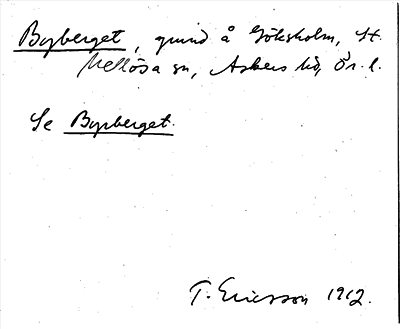 Byberget, grund å Göksholm, St.
Mellösa sn, Askers hd, Ör. l.
Se Byrberget.
T. Ericsson 1912.